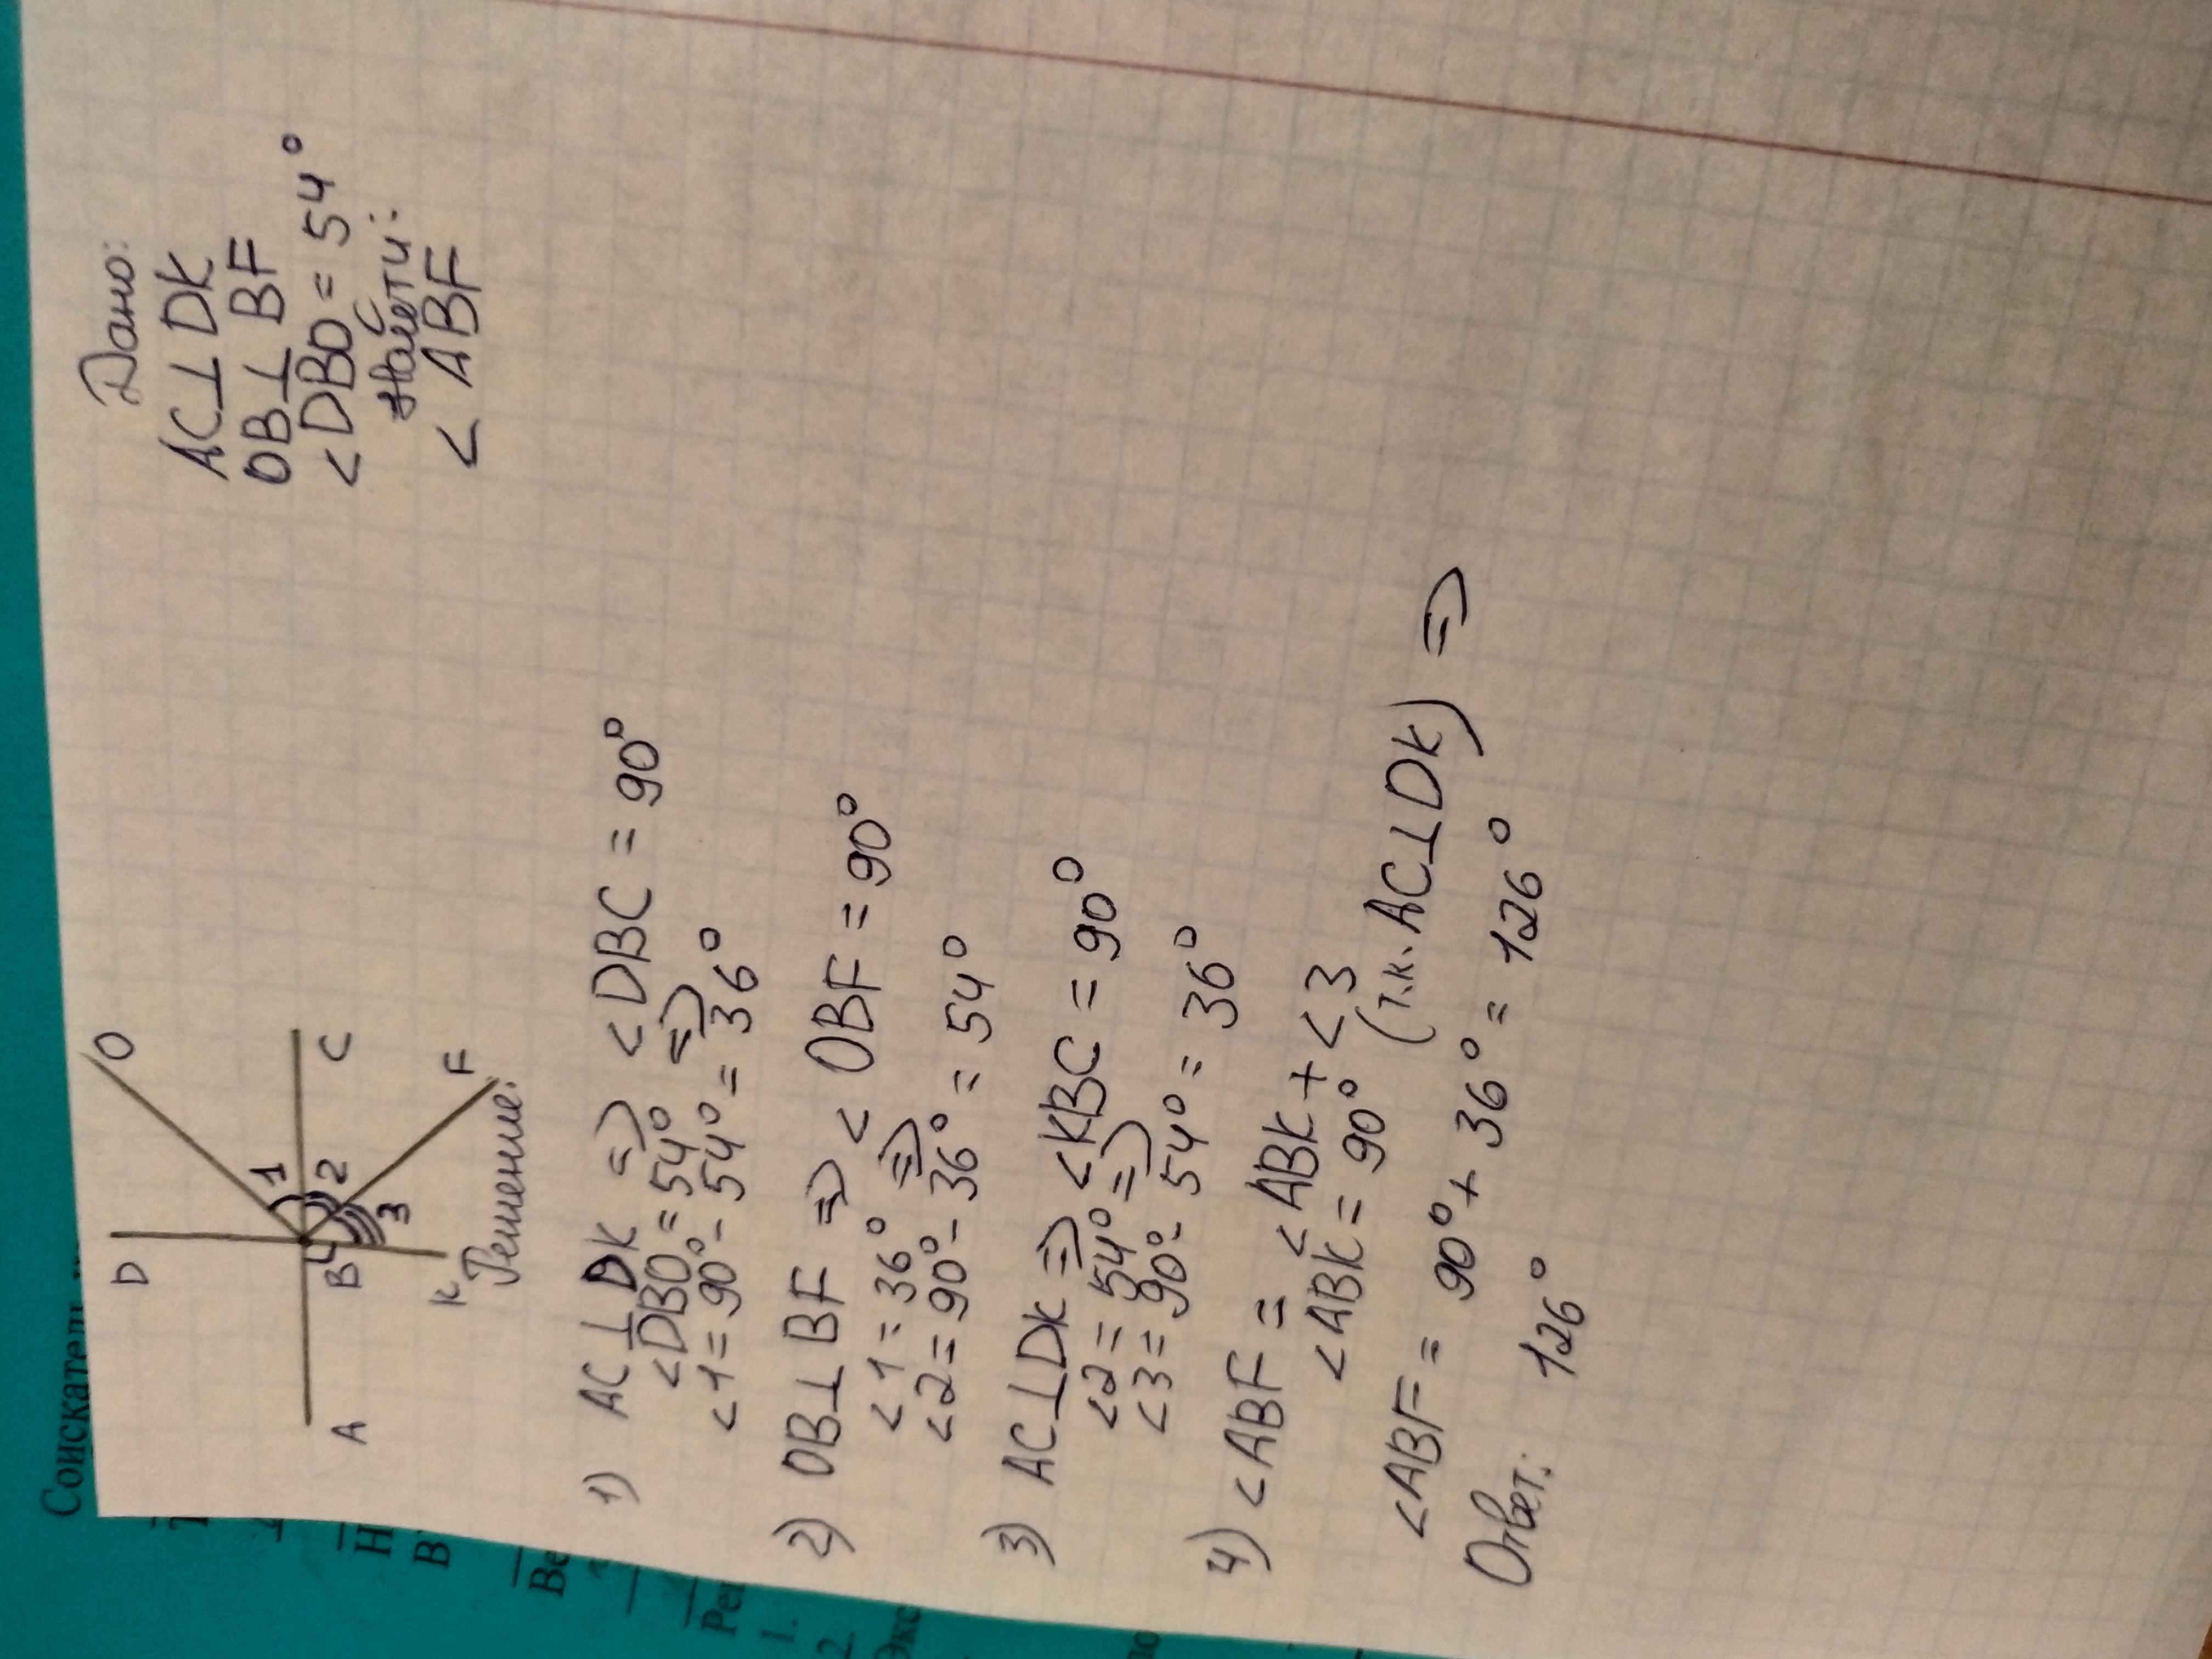 Соискатель
D
O
1
A
B
2
C
3
K
F
Дано:
AC⊥DK
OB⊥BF
<DBO=54°
Найти:
<ABF
Решение:
1) AC⊥DK => <DBC=90°
<DBO=54° =>
<1=90°-54°=36°
2) OB⊥BF => <OBF=90°
<1=36° =>
<2=90°-36°=54°
3) AC⊥DK => <KBC=90°
<2=54° =>
<3=90°-54°=36°
4) <ABF=<ABK+<3
<ABK=90° (т.к. AC⊥DK) =>
<ABF=90°+36°=126°
Ответ: 126°
1.
2.